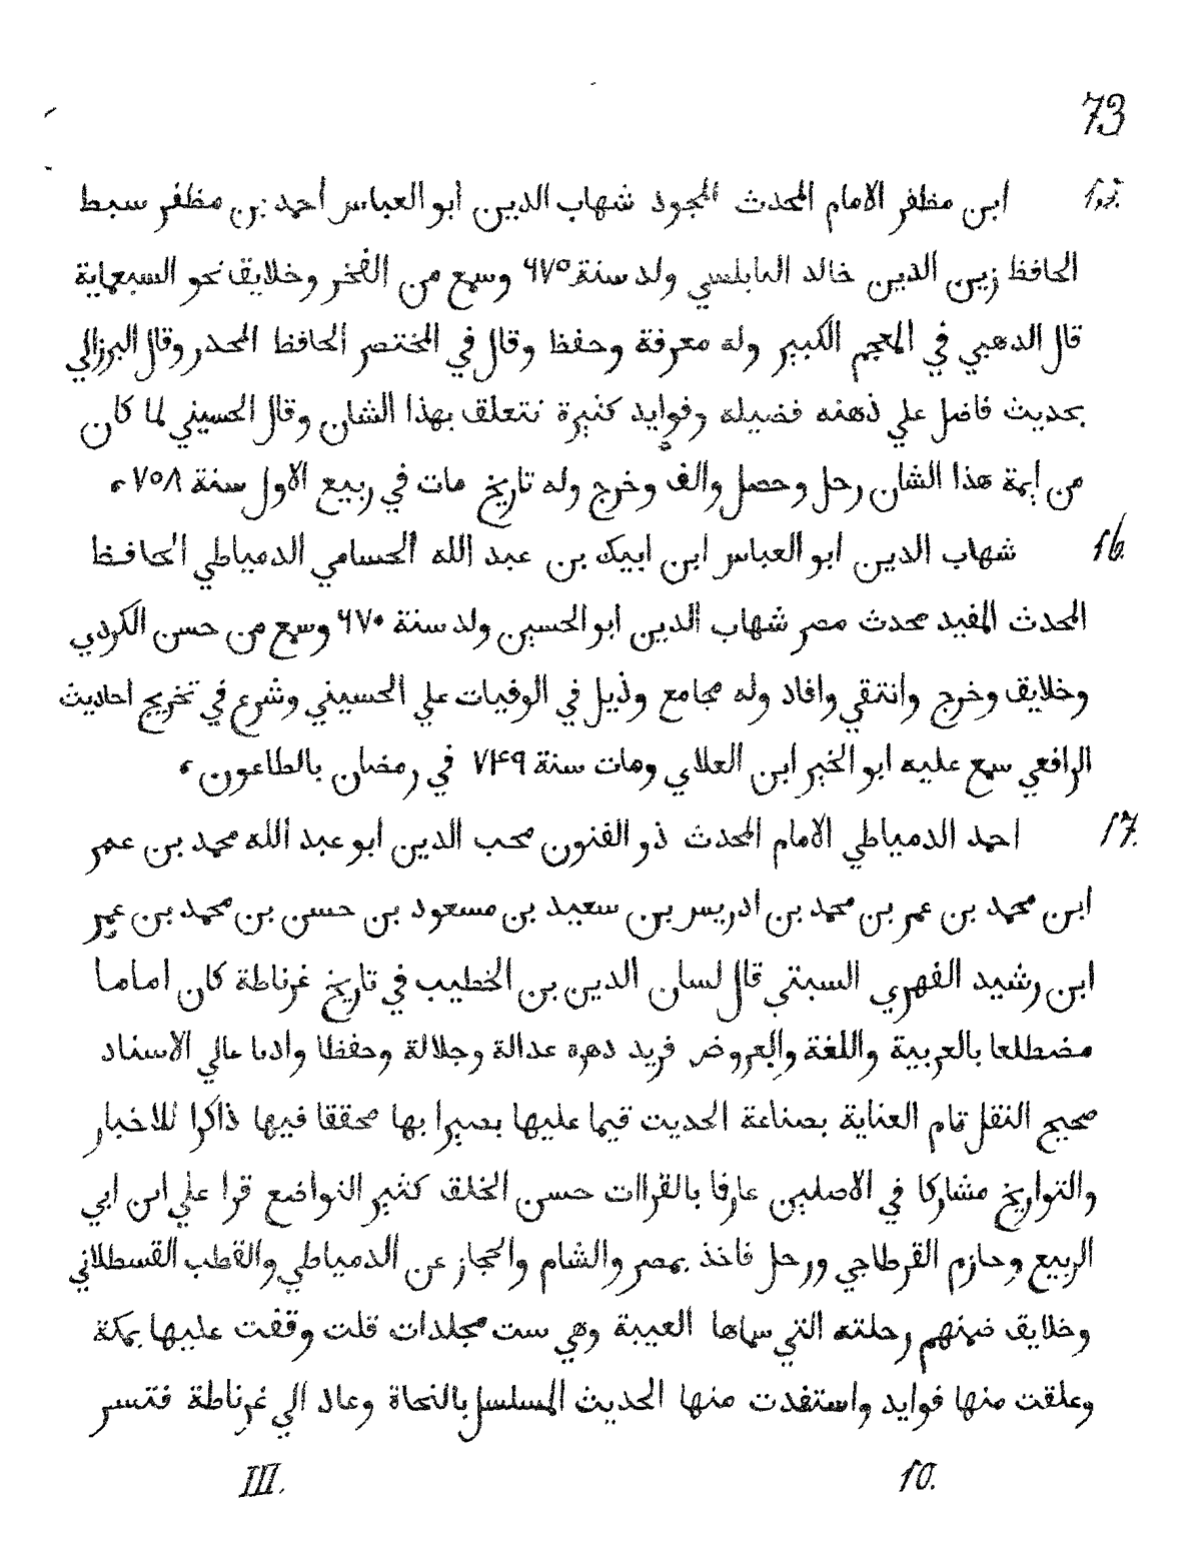 73
15. ابن مظفر الامام المحدث المجود شهاب الدين ابو العباس احمد بن مظفر سبط
الحافظ زين الدين خالد النابلسي ولد سنة ٦٧٥ وسمع من الفخر وخلايق نحو السبعماية
قال الدهبي في المعجم الكبير وله معرفة وحفظ وقال في المختصر الحافظ المحدر وقال البرزالي
بحديث فاضل علي ذهنه فضيله وفوايد كثيرة نتعلق بهذا الشان وقال الحسيني لما كان
من ايمة هذا الشان رحل وحصل والف وخرج وله تاريخ مات في ربيع الاول سنة ٧٥٨،
16. شهاب الدين ابو العباس ابن ايبك بن عبد الله الحسامي الدمياطي الحافظ
المحدث المفيد محدث مصر شهاب الدين ابو الحسين ولد سنة ٦٧٠ وسمع من حسن الكردي
وخلايق وخرج وانتقي وافاد وله مجامع وذيل في الوفيات علي الحسيني وشرع في تخريج احاديث
الرافعي سمع عليه ابو الخير ابن العلاي ومات سنة ٧٤٩ في رمضان بالطاعون،
17. احمد الدمياطي الامام المحدث ذو الفنون محب الدين ابو عبد الله محمد بن عمر
ابن محمد بن عمر بن محمد بن ادريس بن سعيد بن مسعود بن حسن بن محمد بن عمر
ابن رشيد الفهري السبتي قال لسان الدين بن الخطيب في تاريخ غرناطة كان اماما
مضطلعا بالعربية واللغة والعروض فريد دهره عدالة وجلالة وحفظا وادبا عالي الاسناد
صحيح النقل تام العناية بصناعة الحديت قيما عليها بصيرا بها محققا فيها ذاكرا للاخبار
والتواريخ مشاركا في الاصلين عارفا بالقراات حسن الخلق كثير النواضع قرا علي ابن ابي
الربيع وحازم القرطاجي ورحل فاخذ بمصر والشام والحجاز عن الدمياطي والقطب القسطلاني
وخلايق ضمنهم رحلته التي سماها العيبة وهي ست مجلدات قلت وقفت عليها بمكة
وعلقت منها فوايد واستفدت منها الحديث المسلسل بالنحاة وعاد الي غرناطة فتسر
III. 10.